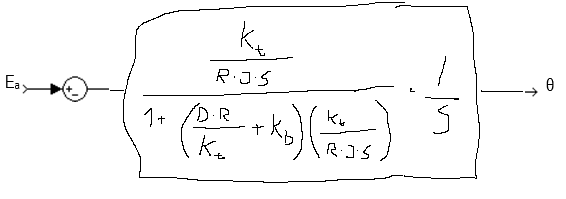 Eₐ + - \frac{\frac{K_t}{R \cdot J \cdot S}}{1 + \left(\frac{D \cdot R}{K_t} + K_b\right)\left(\frac{K_t}{R \cdot J \cdot S}\right)} \cdot \frac{1}{S} θ